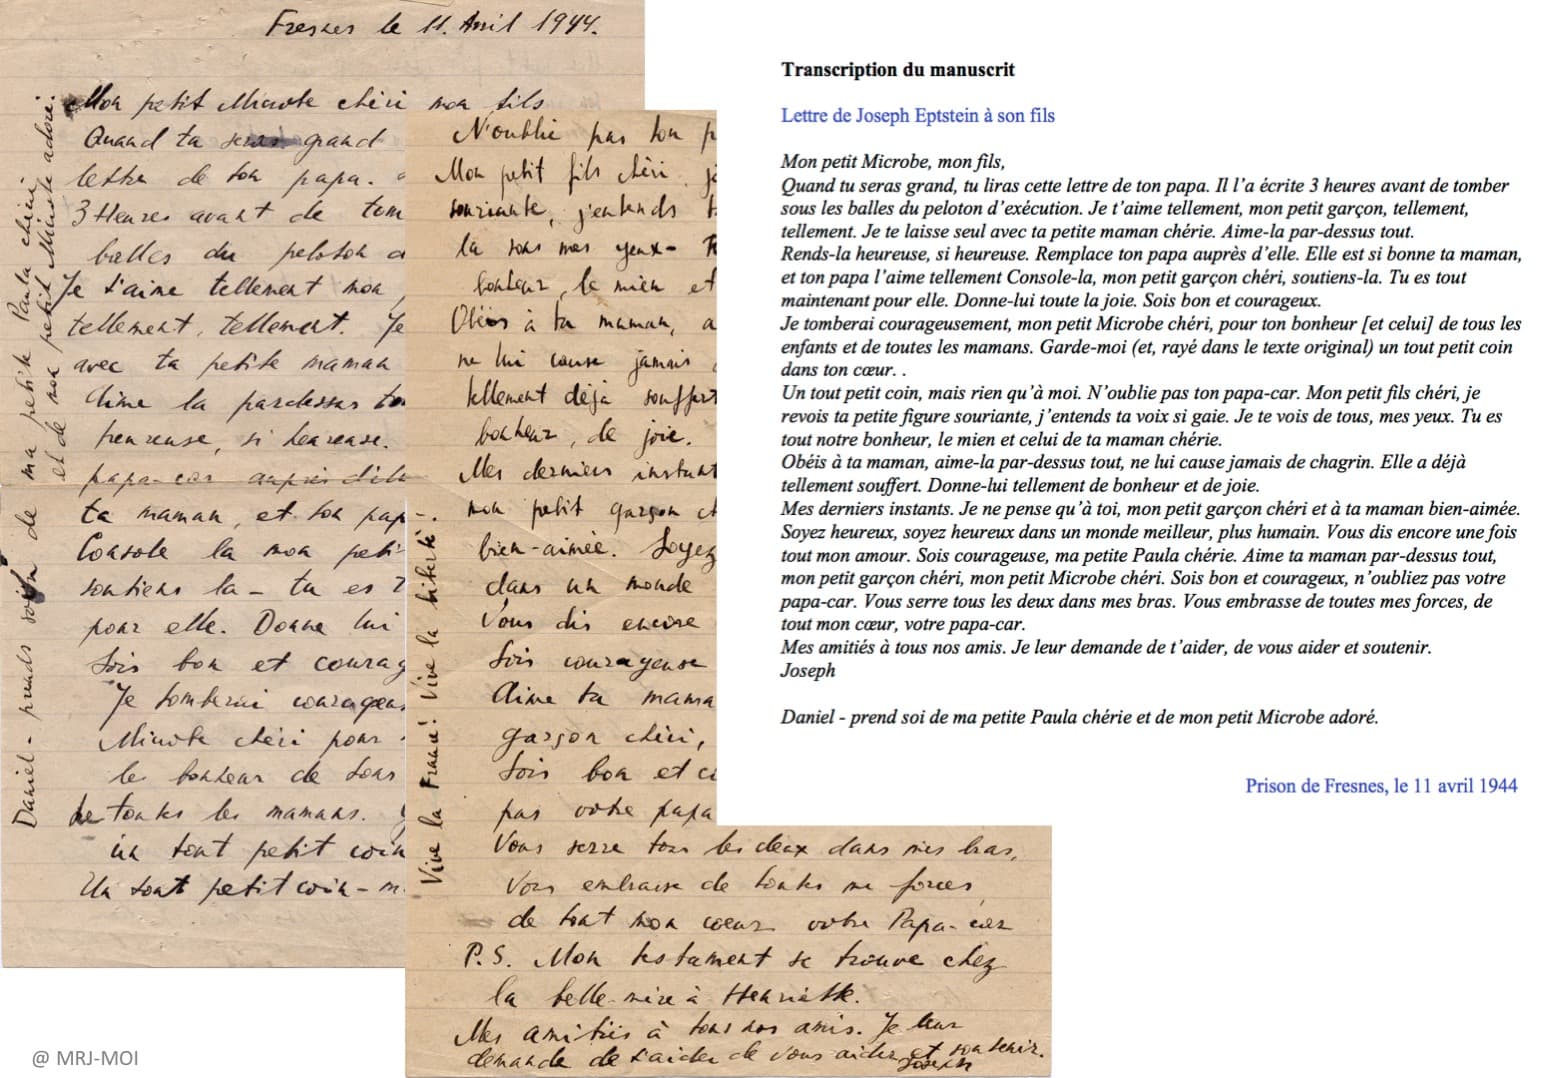 Fresnes le 11. Avril 1944.
Mon petit Microbe chéri mon fils
Quand tu seras grand
lettre de ton papa.
3 Heures avant de tom
balles du peloton d
Je t'aime tellement mon
tellement, tellement. Je
avec ta petite maman
Aime la pardessus to
heureuse, si heureuse.
papa-car auprès d'elle
ta maman, et ton pap
Console la mon peti
soutiens la – tu es t
pour elle. Donne lui
Sois bon et courag
Je tomberai courageus
Microbe chéri pour
le bonheur de tous
de toutes les mamans.
un tout petit coin
Un tout petit coin – m
Daniel – prends soin de ma petite Paula chérie
et de mon petit Microbe adoré.
N'oublie pas ton p
Mon petit fils chéri. je
souriante, j'entends t
la sous mes yeux – T
bonheur, le mien et
Obéis à ta maman, a
ne lui cause jamais
tellement déjà souffert
bonheur, de joie.
Mes derniers instant
mon petit garçon ch
bien-aimée. Soyez
dans un monde
Vous dis encore
Sois courageuse
Aime ta mama
garçon chéri,
Sois bon et co
pas votre papa
Vous serre tous les deux dans mes bras,
Vous embrasse de toutes me forces,
de tout mon coeur votre Papa-car
P.S. Mon testament se trouve chez
la belle-mère à Henriette.
Mes amitiés à tous nos amis. Je leur
demande de t'aider de vous aider et soutenir.
Joseph
Vive la France! Vive la liberté!
Transcription du manuscrit
Lettre de Joseph Eptstein à son fils
Mon petit Microbe, mon fils,
Quand tu seras grand, tu liras cette lettre de ton papa. Il l'a écrite 3 heures avant de tomber
sous les balles du peloton d'exécution. Je t'aime tellement, mon petit garçon, tellement,
tellement. Je te laisse seul avec ta petite maman chérie. Aime-la par-dessus tout.
Rends-la heureuse, si heureuse. Remplace ton papa auprès d'elle. Elle est si bonne ta maman,
et ton papa l'aime tellement Console-la, mon petit garçon chéri, soutiens-la. Tu es tout
maintenant pour elle. Donne-lui toute la joie. Sois bon et courageux.
Je tomberai courageusement, mon petit Microbe chéri, pour ton bonheur [et celui] de tous les
enfants et de toutes les mamans. Garde-moi (et, rayé dans le texte original) un tout petit coin
dans ton cœur. .
Un tout petit coin, mais rien qu'à moi. N'oublie pas ton papa-car. Mon petit fils chéri, je
revois ta petite figure souriante, j'entends ta voix si gaie. Je te vois de tous, mes yeux. Tu es
tout notre bonheur, le mien et celui de ta maman chérie.
Obéis à ta maman, aime-la par-dessus tout, ne lui cause jamais de chagrin. Elle a déjà
tellement souffert. Donne-lui tellement de bonheur et de joie.
Mes derniers instants. Je ne pense qu'à toi, mon petit garçon chéri et à ta maman bien-aimée.
Soyez heureux, soyez heureux dans un monde meilleur, plus humain. Vous dis encore une fois
tout mon amour. Sois courageuse, ma petite Paula chérie. Aime ta maman par-dessus tout,
mon petit garçon chéri, mon petit Microbe chéri. Sois bon et courageux, n'oubliez pas votre
papa-car. Vous serre tous les deux dans mes bras. Vous embrasse de toutes mes forces, de
tout mon cœur, votre papa-car.
Mes amitiés à tous nos amis. Je leur demande de t'aider, de vous aider et soutenir.
Joseph
Daniel - prend soi de ma petite Paula chérie et de mon petit Microbe adoré.
Prison de Fresnes, le 11 avril 1944
@ MRJ-MOI